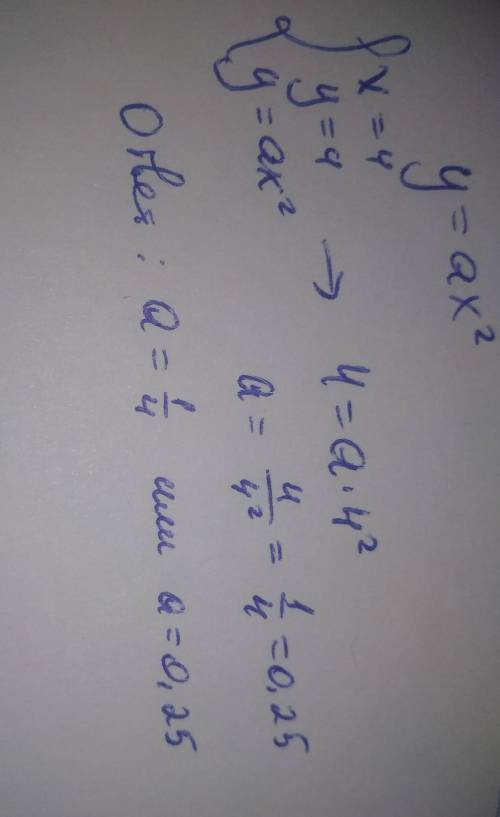 y = ax²
{ x = 4
y = 4
y = ax² → 4 = a · 4²
a = 4/4² = 1/4 = 0,25
Ответ: a = 1/4 или a = 0,25